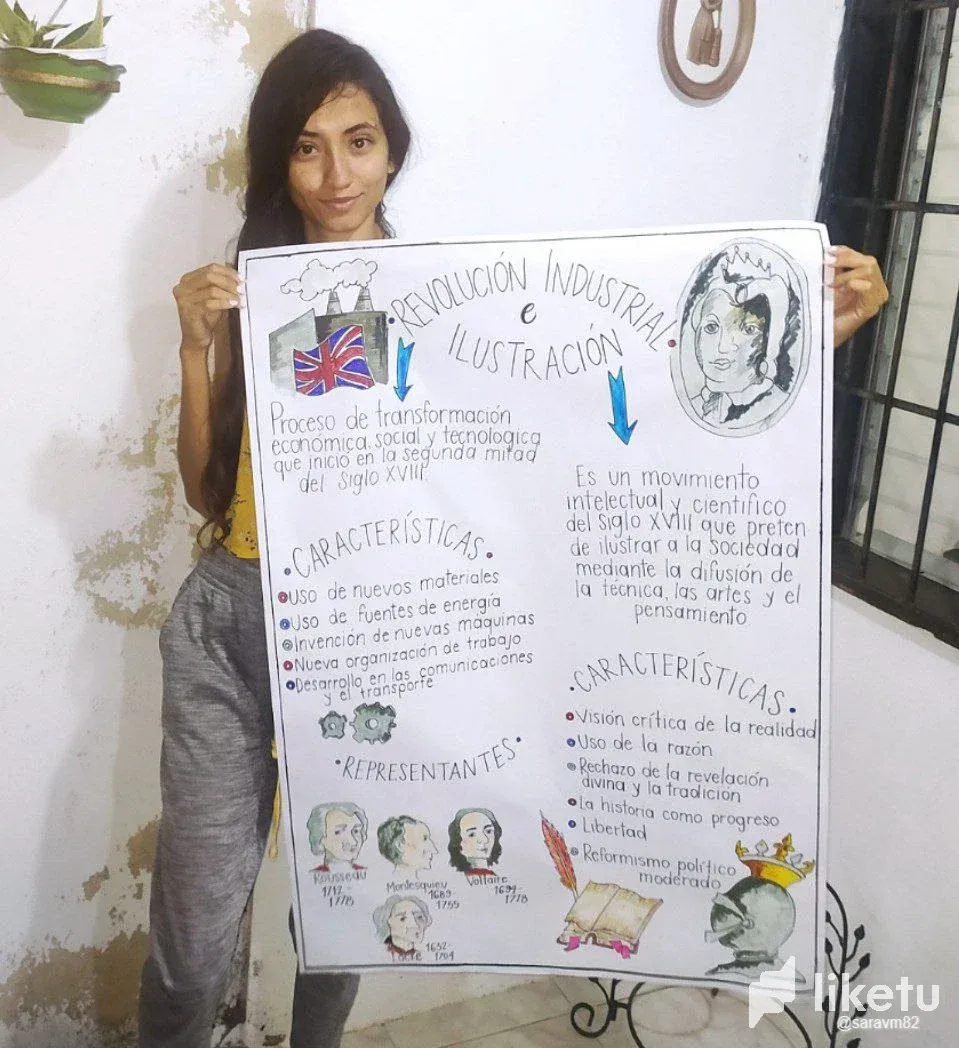 REVOLUCIÓN INDUSTRIAL
e
ILUSTRACIÓN
Proceso de transformación
económica, social y tecnológica
que inició en la segunda mitad
del Siglo XVIII
• CARACTERÍSTICAS •
• Uso de nuevos materiales
• Uso de fuentes de energía
• Invención de nuevas maquinas
• Nueva organización de trabajo
• Desarrollo en las comunicaciones
y el transporte
• REPRESENTANTES •
Rousseau
1712-
1778
Montesquieu
1689-
1755
Voltaire
1694-
1778
Locke
1632-
1704
Es un movimiento
intelectual y científico
del Siglo XVIII que preten-
de ilustrar a la sociedad
mediante la difusión de
la técnica, las artes y el
pensamiento
• CARACTERÍSTICAS •
• Visión crítica de la realidad
• Uso de la razón
• Rechazo de la revelación
divina y la tradición
• La historia como progreso
• Libertad
• Reformismo político
moderado
liketu
@saravm82